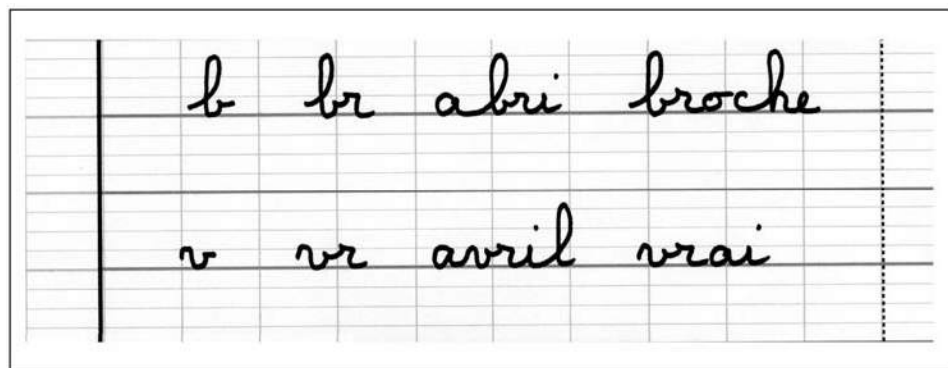 b br abri broche
v vr avril vrai